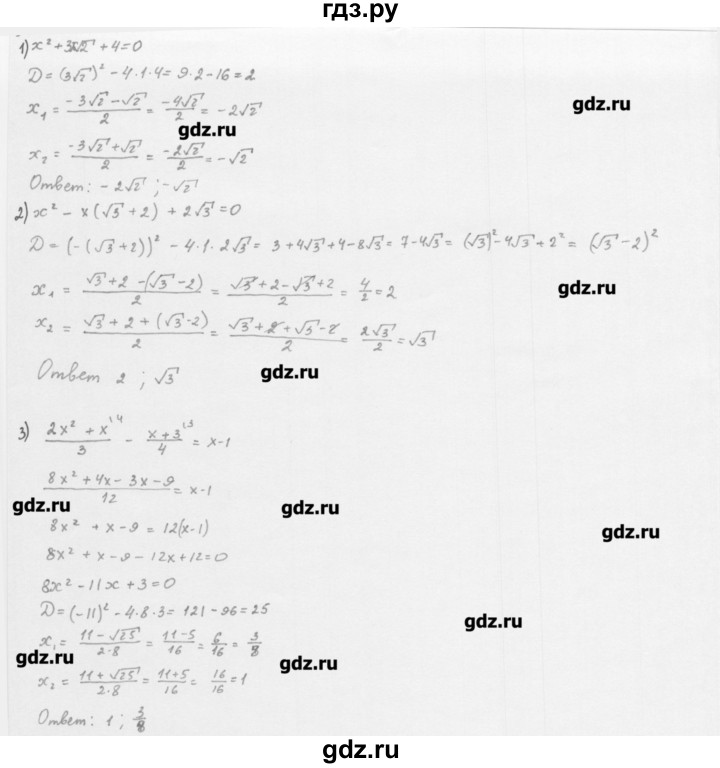 гдз.ру
1) x² + 3√2 + 4 = 0
D = (3√2)² - 4·1·4 = 9·2 - 16 = 2
x₁ = (-3√2 - √2)/2 = -4√2/2 = -2√2
gdz.ru
gdz.ru
x₂ = (-3√2 + √2)/2 = -2√2/2 = -√2
Ответ: -2√2; -√2
2) x² - x(√3 + 2) + 2√3 = 0
D = (-(√3 + 2))² - 4·1·2√3 = 3 + 4√3 + 4 - 8√3 = 7 - 4√3 = (√3)² - 4√3 + 2² = (√3 - 2)²
x₁ = (√3 + 2 - (√3 - 2))/2 = (√3 + 2 - √3 + 2)/2 = 4/2 = 2
gdz.ru
x₂ = (√3 + 2 + (√3 - 2))/2 = (√3 + 2 + √3 - 2)/2 = 2√3/2 = √3
Ответ 2; √3
gdz.ru
3) (2x² + x)/3 \4 - (x + 3)/4 \3 = x - 1
(8x² + 4x - 3x - 9)/12 = x - 1
gdz.ru
gdz.ru
8x² + x - 9 = 12(x - 1)
gdz.ru
8x² + x - 9 - 12x + 12 = 0
8x² - 11x + 3 = 0
D = (-11)² - 4·8·3 = 121 - 96 = 25
gdz.ru
x₁ = (11 - √25)/(2·8) = (11 - 5)/16 = 6/16 = 3/8
gdz.ru
gdz.ru
x₂ = (11 + √25)/(2·8) = (11 + 5)/16 = 16/16 = 1
Ответ: 1; 3/8
gdz.ru